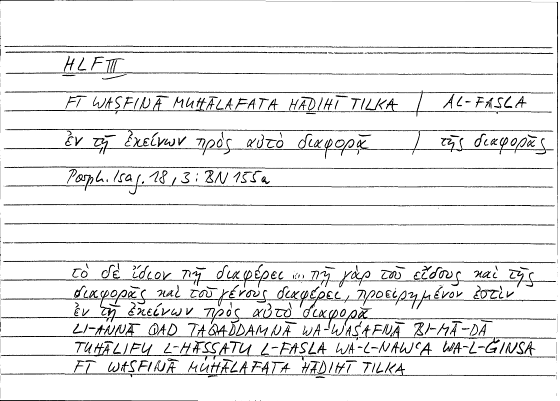 HLF III
FĪ WAṢFINĀ MUḪĀLAFATA HĀḎIHĪ TILKA / AL-FAṢLA
ἐν τῇ ἐκείνων πρὸς αὐτὸ διαφορᾷ / τῆς διαφορᾶς
Porph. Isag. 18, 3 : BN 155a
τὸ δὲ ἴδιον πῇ διαφέρει ... πῇ γὰρ τοῦ εἴδους καὶ τῆς
διαφορᾶς καὶ τοῦ γένους διαφέρει, προειρημένον ἐστὶν
ἐν τῇ ἐκείνων πρὸς αὐτὸ διαφορᾷ
LI-ANNĀ QAD TAQADDAMNĀ WA-WAṢAFNĀ BI-MĀ-ḎĀ
TUḪĀLIFU L-ḪĀṢṢATU L-FAṢLA WA-L-NAWʿA WA-L-ǦINSA
FĪ WAṢFINĀ MUḪĀLAFATA HĀḎIHĪ TILKA